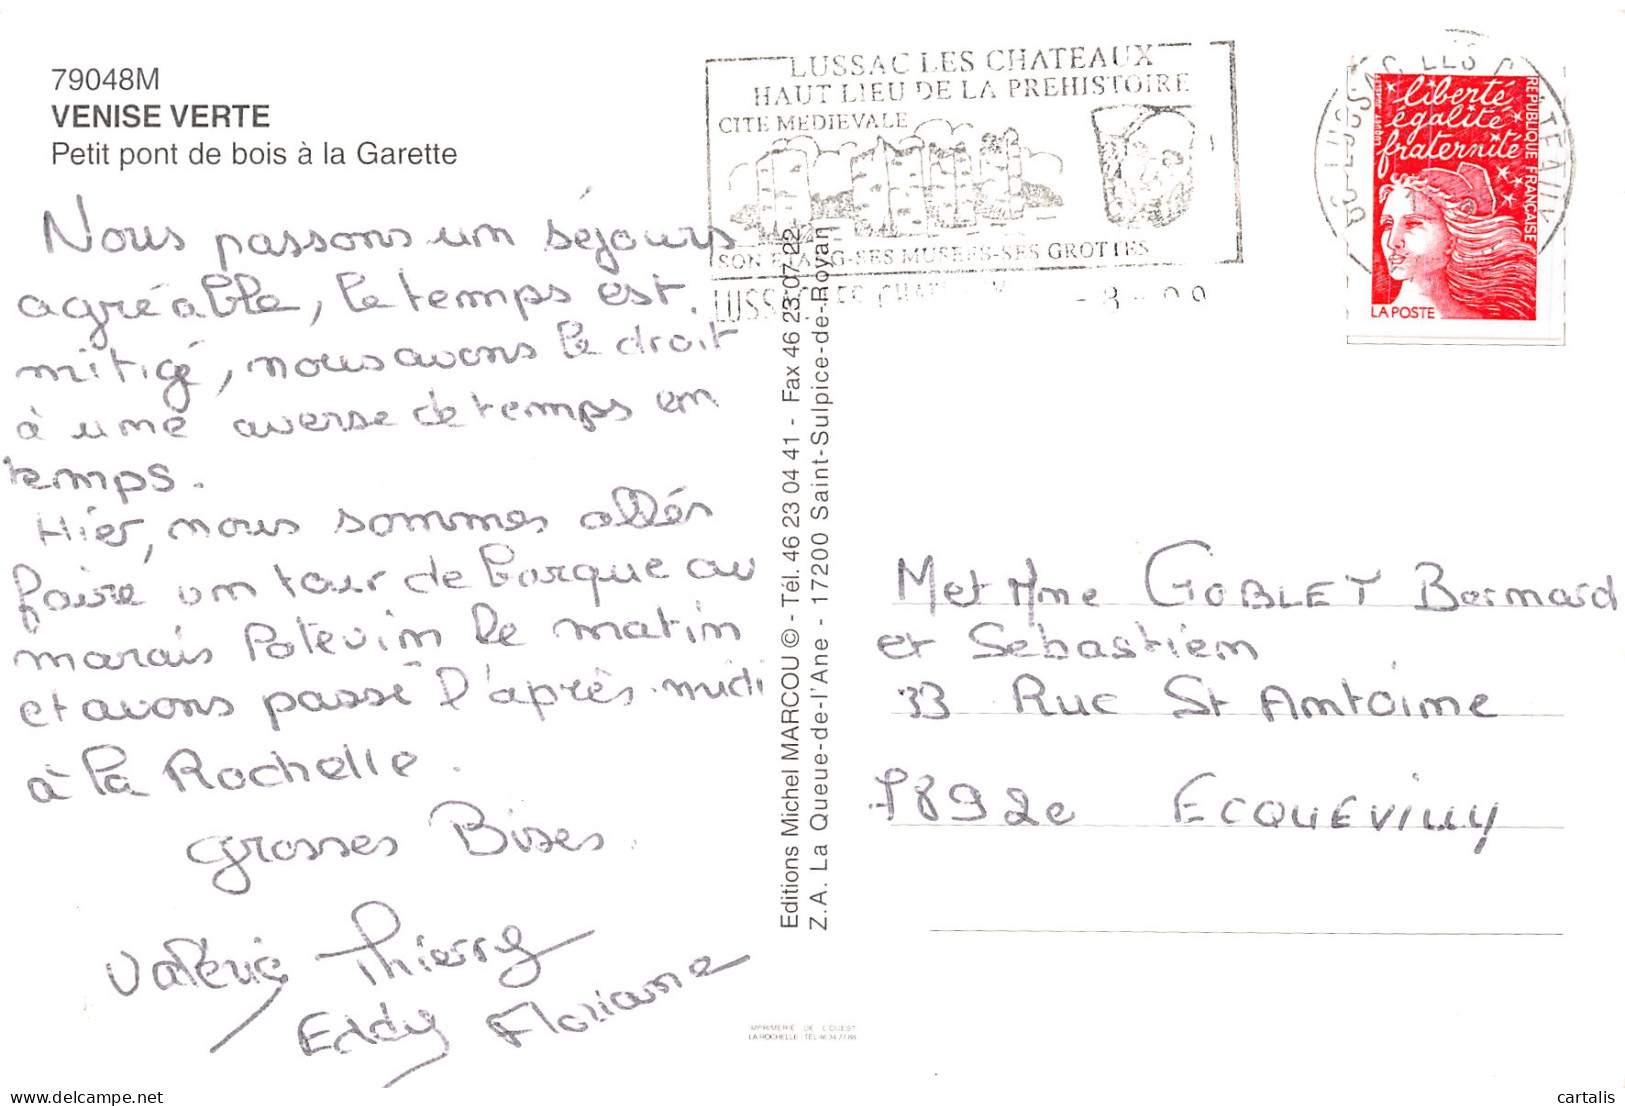 79048M
VENISE VERTE
Petit pont de bois à la Garette
Nous passons un séjours
agréable, le temps est.
mitigé, nous avons le droit
à une averse de temps en
temps.
Hier, nous sommes allés
faire un tour de barque au
marais Potevin le matin
et avons passé l'après-midi
à la Rochelle.
grosses Bises.
Valérie Thierry
Eddy Floriane
Editions Michel MARCOU © - Tél. 46 23 04 41 - Fax 46 23 07 22
Z.A. La Queue-de-l'Ane - 17200 Saint-Sulpice-de-Royan
IMPRIMERIE DE L'OUEST
LA ROCHELLE TEL
LUSSAC LES CHATEAUX
HAUT LIEU DE LA PREHISTOIRE
CITE MEDIEVALE
SON ETANG-SES MUSEES-SES GROTTES
86 LUSSAC LES CHATEAUX
liberté
égalité
fraternité
RÉPUBLIQUE FRANÇAISE
LA POSTE
M et Mme GOBLET Bernard
et Sébastien
33 Rue St Antoine
78920 ECQUEVILLY
cartalis